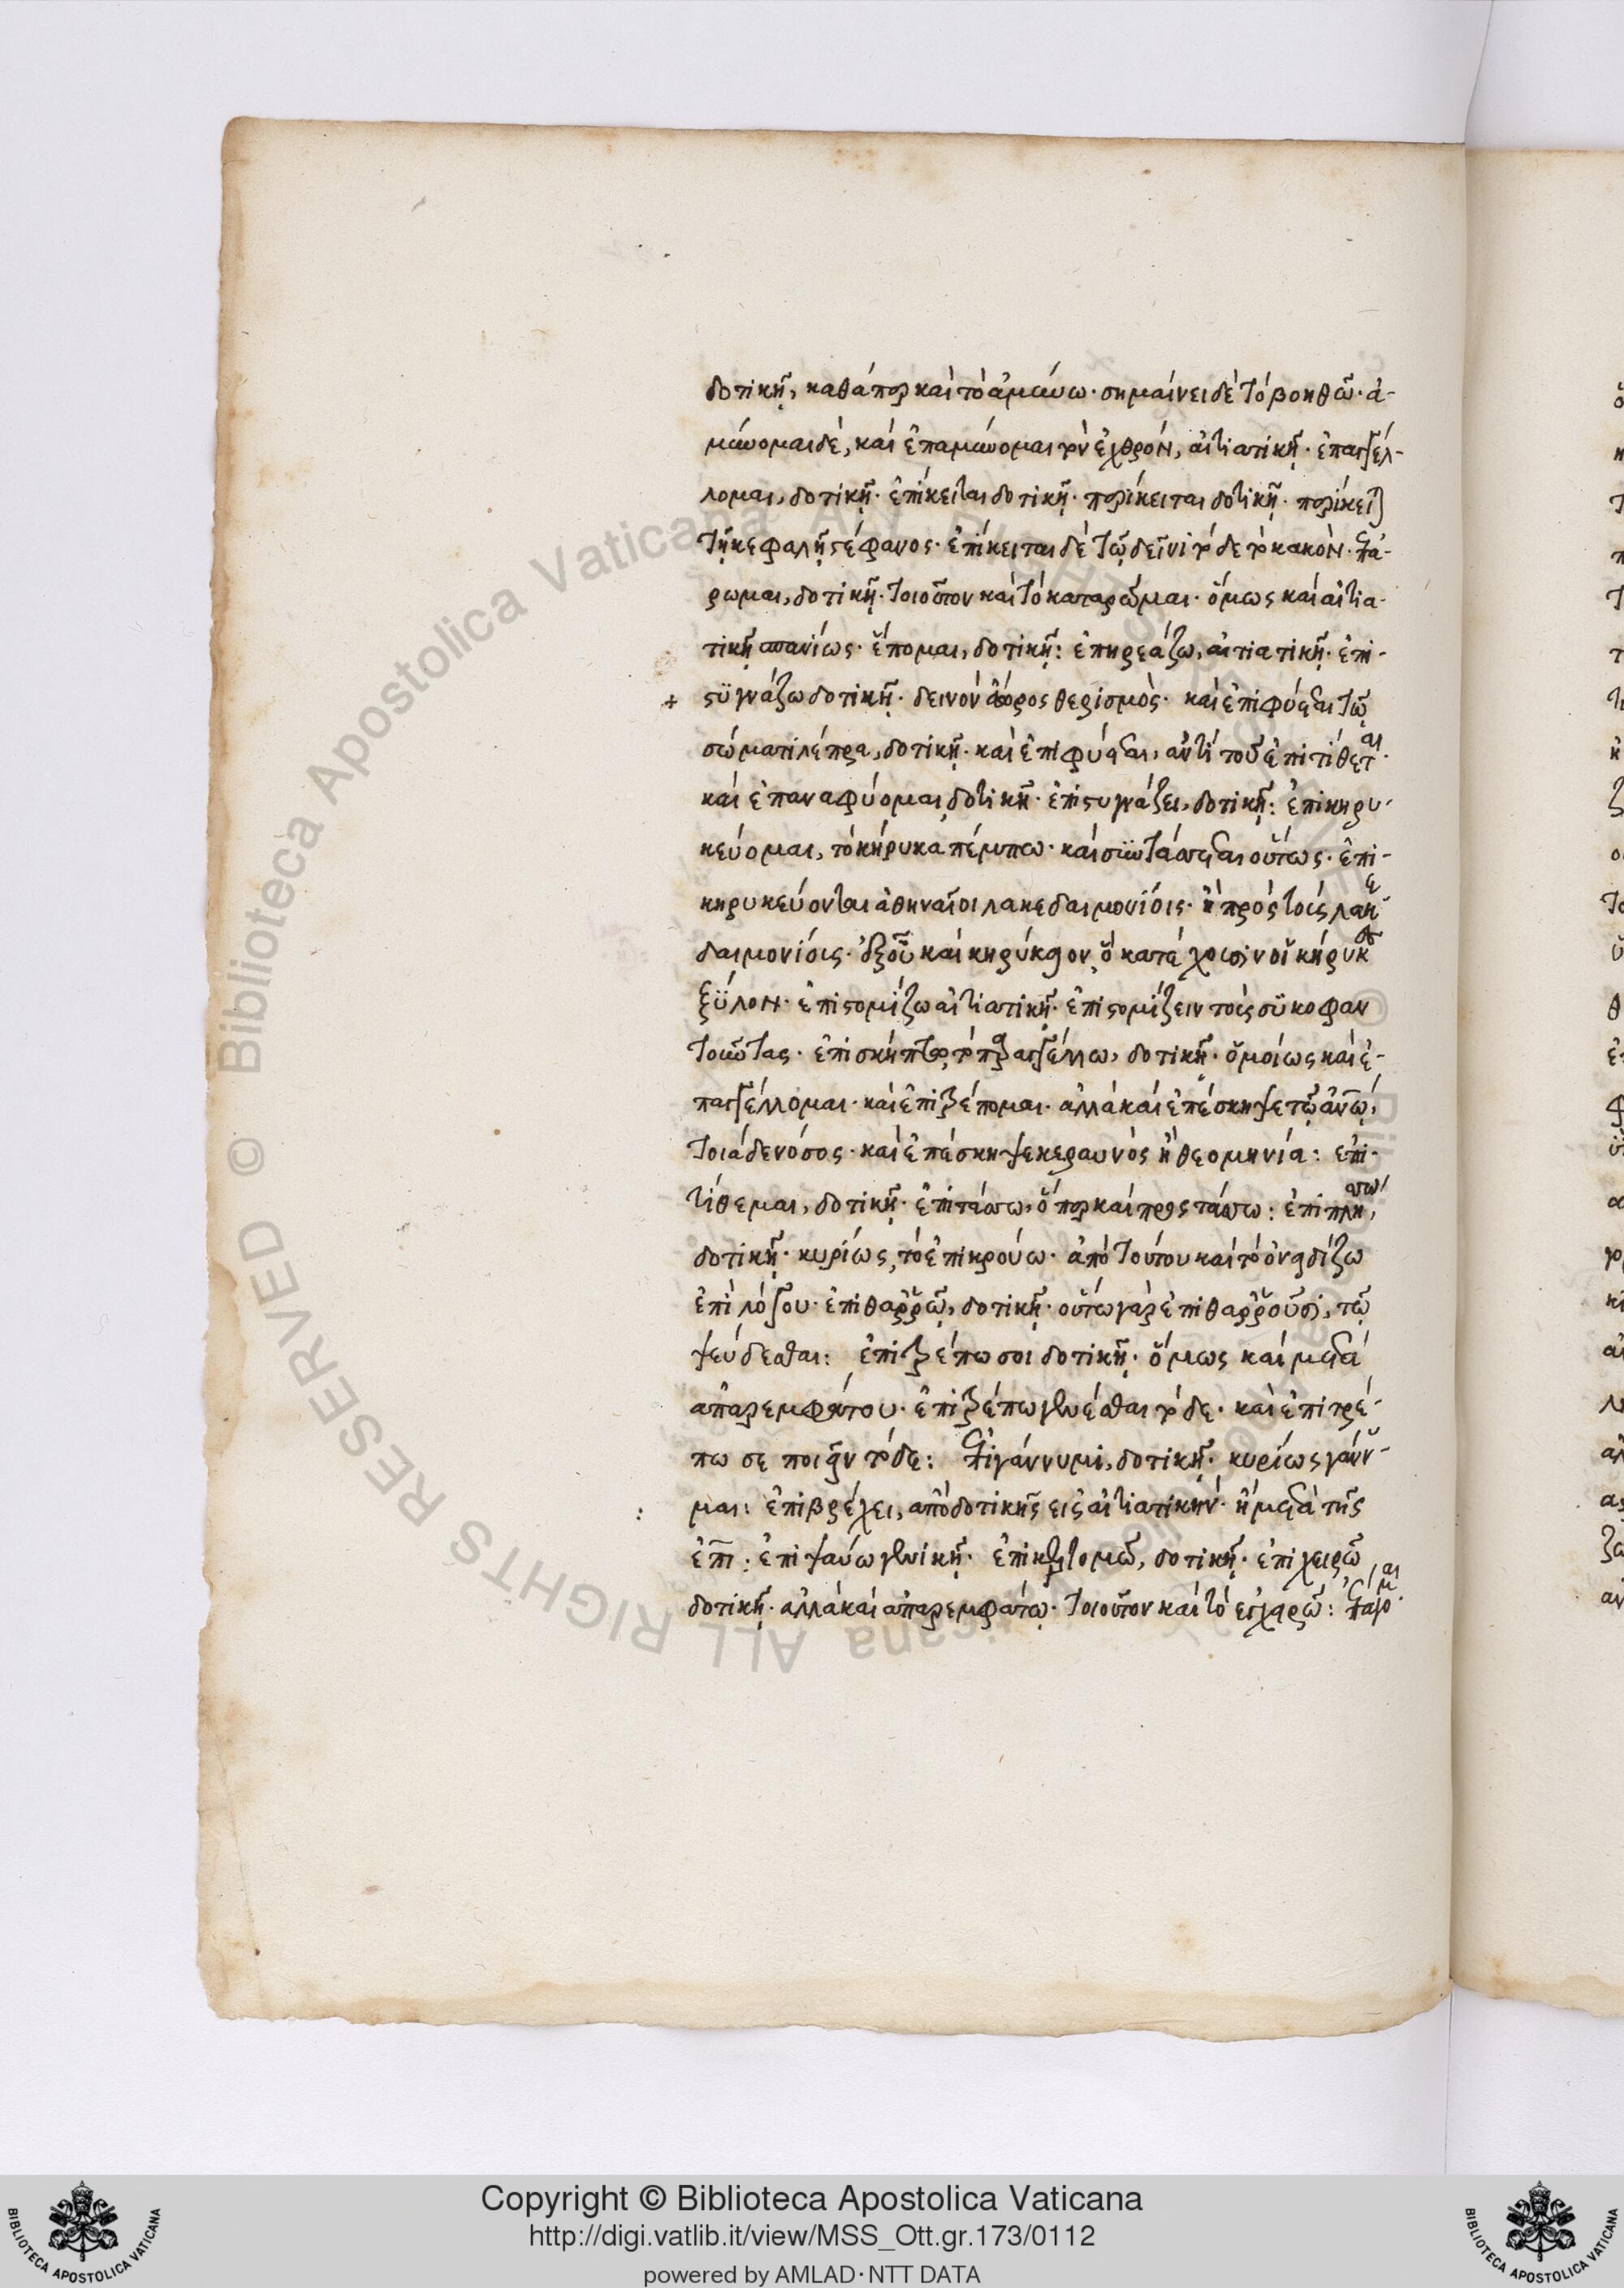 δοτικῇ, καθάπερ καὶ τὸ ἀμύνω· σημαίνει δὲ τὸ βοηθῶ· ἀ-
μύνομαι δὲ, καὶ ἐπαμύνομαι τὸν ἐχθρόν, αἰτιατικῇ· ἐπαγγέλ-
λομαι, δοτικῇ· ἐπίκειται δοτικῇ· περίκειται δοτικῇ· περίκειται
τῇ κεφαλῇ στέφανος· ἐπίκειται δὲ τῷ δεῖνι τόδε τὸ κακόν· ἐπα-
ρῶμαι, δοτικῇ· τοιοῦτον καὶ τὸ καταρῶμαι· ὅμως καὶ αἰτια-
τικῇ σπανίως· ἕπομαι, δοτικῇ: ἐπηρεάζω, αἰτιατικῇ· ἐπι-
+ στυγνάζω δοτικῇ· δεινὸν θέρος θερισμός· καὶ ἐπιφύεται τῷ
σώματι λέπρα, δοτικῇ· καὶ ἐπιφύεται, ἀντὶ τοῦ ἐπιτίθεται·
καὶ ἐπαναφύομαι δοτικῇ· ἐπιστυγνάζει, δοτικῇ: ἐπικηρυ-
κεύομαι, τὸ κήρυκα πέμπω· καὶ συντάσσεται οὕτως· ἐπι-
κηρυκεύονται ἀθηναῖοι λακεδαιμονίοις· ἢ πρὸς τοὺς λακε
δαιμονίοις· ἐξ οὗ καὶ κηρύκειον, ὃ κατέχουσιν οἱ κήρυκες
ξύλον· ἐπιστομίζω αἰτιατικῇ· ἐπιστομίζειν τοὺς συκοφαν
τοῦντας· ἐπισκήπτω, τὸ παραγγέλλω, δοτικῇ· ὁμοίως καὶ ἐ-
παγγέλλομαι· καὶ ἐπιτρέπομαι· ἀλλὰ καὶ ἐπέσκηψε τῷ ἀνω,
τοιάδε νόσος· καὶ ἐπέσκηψε κεραυνὸς ἢ θεομηνία: ἐπι-
τίθεμαι, δοτικῇ· ἐπιτάσσω, ὅπερ καὶ προστάσσω: ἐπιπλήσσω,
δοτικῇ· κυρίως, τὸ ἐπικρούω· ἀπὸ τούτου καὶ τὸ ὀνειδίζω
ἐπὶ λόγου· ἐπιθαρρῶ, δοτικῇ· οὕτω γὰρ ἐπιθαρροῦσι, τῷ
ψεύδεσθαι: ἐπιτρέπω σοι δοτικῇ· ὅμως καὶ μετὰ
ἀπαρεμφάτου· ἐπιτρέπω γενέσθαι τόδε· καὶ ἐπιτρέ-
πω σε ποιεῖν τόδε: ἐπιγάννυμι, δοτικῇ· κυρίως γάνυ-
: μαι: ἐπιβρέχει, ἀπὸ δοτικῆς εἰς αἰτιατικήν· ἢ μετὰ τῆς
ἐπι: ἐπιψαύω γενικῇ· ἐπικερτομῶ, δοτικῇ· ἐπιχειρῶ
δοτικῇ· ἀλλὰ καὶ ἀπαρεμφάτῳ· τοιοῦτον καὶ τὸ ἐγχειρῶ:
Copyright © Biblioteca Apostolica Vaticana
http://digi.vatlib.it/view/MSS_Ott.gr.173/0112
powered by AMLAD·NTT DATA